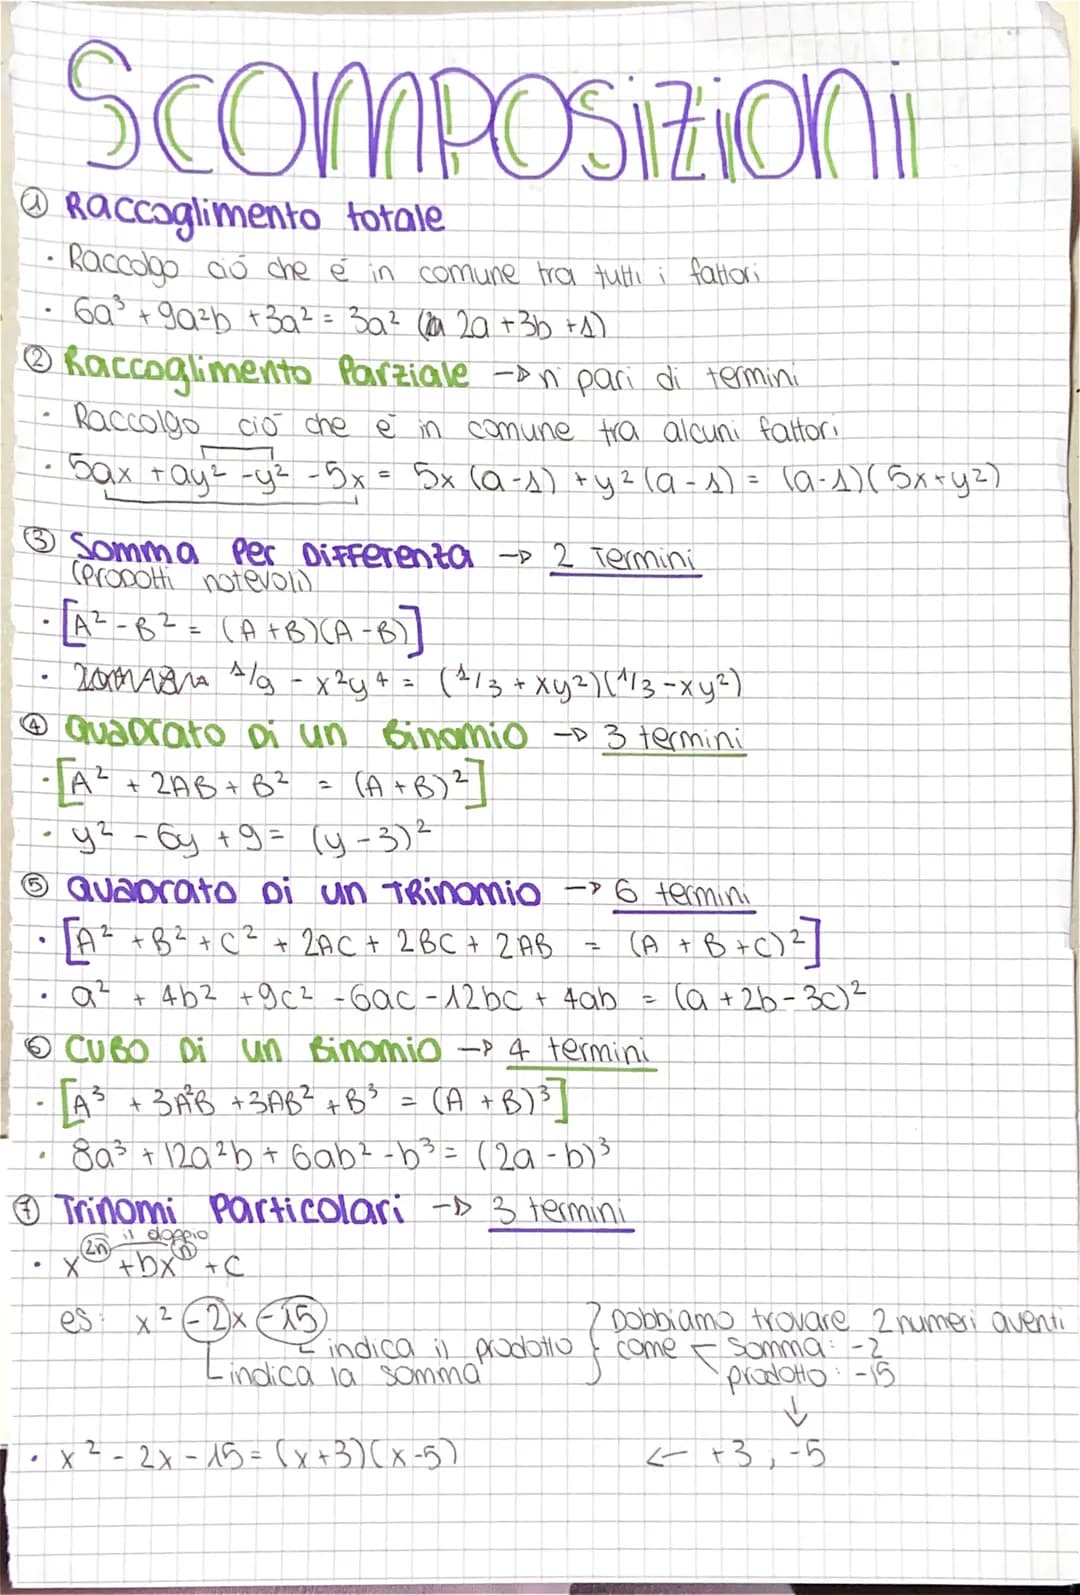 SCOMPOSIZIONI
① Raccoglimento totale
· Raccolgo ció che é in comune tra tutti i fattori
· 6a³ + 9a²b + 3a² = 3a² ( 2a + 3b + 1)
② Raccoglimento Parziale → n pari di termini
· Raccolgo ció che é in comune tra alcuni fattori
· 5ax + ay² - y² - 5x = 5x (a-1) + y² (a-1) = (a-1)(5x+y²)
③ Somma Per Differenza → 2 Termini
(Prodotti notevoli)
· [A² - B² = (A+B)(A-B)]
· 1/9 - x²y⁴ = (1/3 + xy²)(1/3 - xy²)
④ Quadrato Di un Binomio → 3 termini
· [A² + 2AB + B² = (A+B)²]
· y² - 6y + 9 = (y-3)²
⑤ Quadrato Di un TRinomio → 6 termini
· [A² + B² + C² + 2AC + 2BC + 2AB = (A + B + C)²]
· a² + 4b² + 9c² - 6ac - 12bc + 4ab = (a + 2b - 3c)²
⑥ CUBO Di un Binomio → 4 termini
· [A³ + 3A²B + 3AB² + B³ = (A + B)³]
· 8a³ + 12a²b + 6ab² - b³ = (2a - b)³
⑦ Trinomi Particolari → 3 termini
il doppio
· x²ⁿ + bxⁿ + c
es: x² - 2x - 15
indica il prodotto
indica la somma
Dobbiamo trovare 2 numeri aventi
come Somma: -2
prodotto: -15
↓
· x² - 2x - 15 = (x+3)(x-5) ← +3, -5